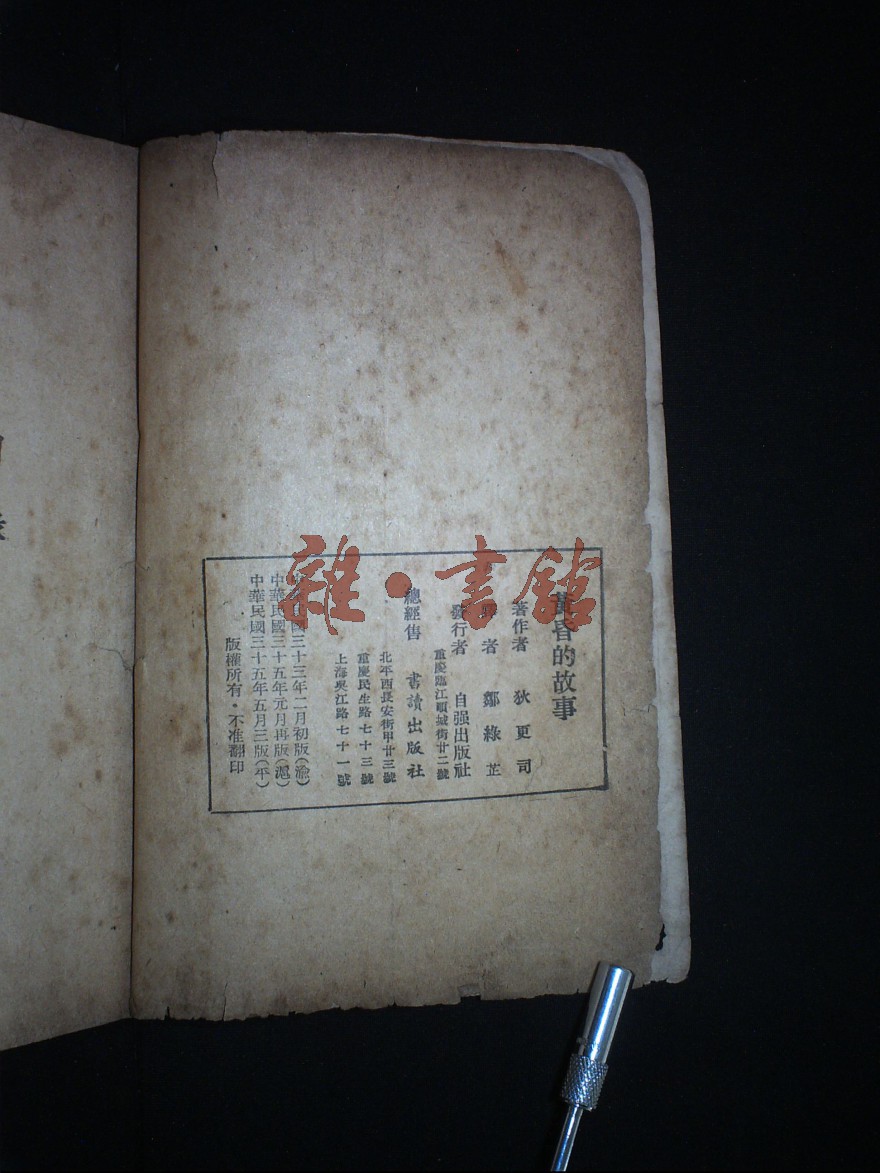 黃昏的故事
著作者　狄更司
者　鄒綠芷
發行者　自强出版社
重慶臨江順城街廿二號
總經售　書讀出版社
北平西長安街甲廿三號
重慶民生路七十三號
上海吳江路七十一號
國三十三年二月初版(渝)
中華民國三十五年元月再版(滬)
中華民國三十五年五月三版(平)
版權所有·不准翻印
雜·書館